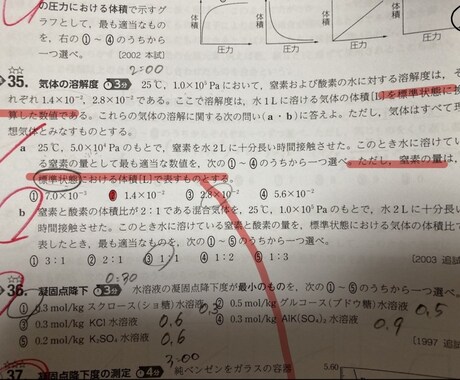 の圧力における体積で示すグ
ラフとして、最も適当なもの
を、右の①～④のうちから
一つ選べ。 [2002 本試]
体積
圧力
体積
圧力
圧力
圧力
2:00
35. 気体の溶解度 3分 25℃, 1.0×10⁵ Pa において, 窒素および酸素の水に対する溶解度は, そ
れぞれ 1.4×10⁻², 2.8×10⁻² である。ここで溶解度は, 水1Lに溶ける気体の体積[L]を標準状態に換
算した数値である。これらの気体の溶解に関する次の問い(a・b)に答えよ。ただし, 気体はすべて理
想気体とみなすものとする。
a 25℃, 5.0×10⁴ Pa のもとで, 窒素を水2Lに十分長い時間接触させた。このとき水に溶けてい
る窒素の量として最も適当な数値を, 次の①～④のうちから一つ選べ。ただし, 窒素の量は,
標準状態における体積[L]で表すものとする。
① 7.0×10⁻³ ② 1.4×10⁻² ③ 2.8×10⁻² ④ 5.6×10⁻²
b 窒素と酸素の体積比が2:1である混合気体を, 25℃, 1.0×10⁵ Pa のもと, 水2Lに十分長い
時間接触させた。このとき水に溶けている窒素と酸素の量を, 標準状態における体積の比で
表したとき, 最も適当なものを, 次の①～⑤のうちから一つ選べ。
① 3:1 ② 2:1 ③ 1:1 ④ 1:2 ⑤ 1:3 [2003 追試
0:30
36. 凝固点降下 3分 水溶液の凝固点降下度が最小のものを, 次の①～⑤のうちから一つ選べ。
① 0.3 mol/kg スクロース(ショ糖)水溶液 0.3 ② 0.5 mol/kg グルコース(ブドウ糖)水溶液 0.5
③ 0.3 mol/kg KCl 水溶液 0.6 ④ 0.3 mol/kg AlK(SO₄)₂ 水溶液 0.9
⑤ 0.2 mol/kg K₂SO₄ 水溶液 0.6 [1997 追試
3:00
37 凝固点降下度の測定 4分 純ベンゼンをガラスの容器
5.60